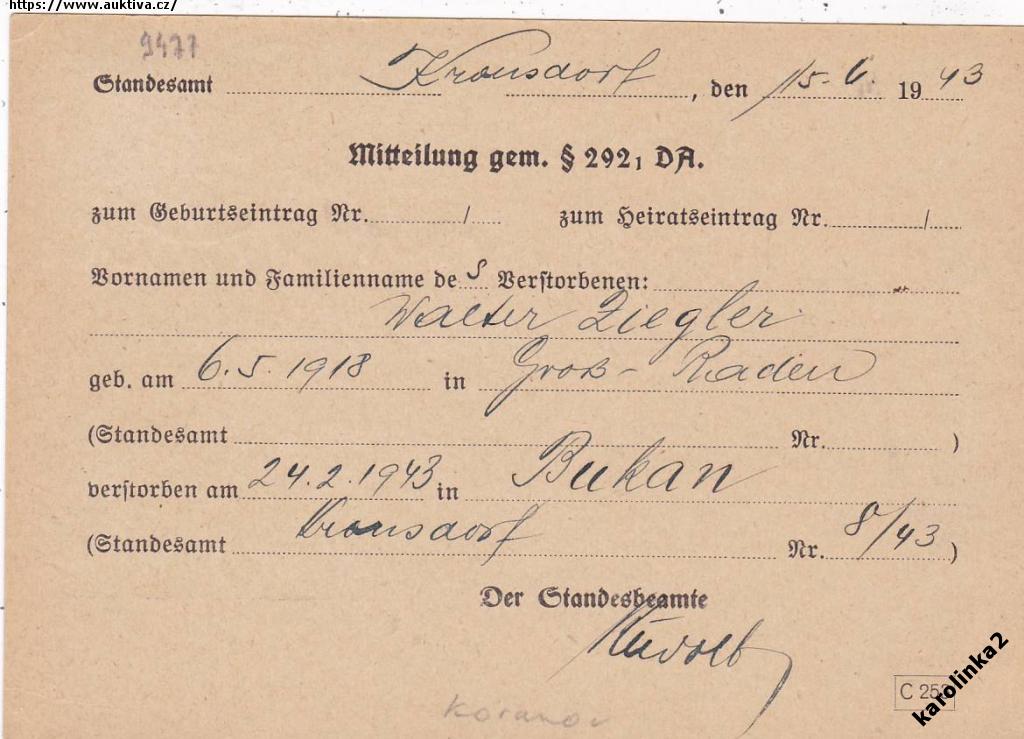 https://www.auktiva.cz/
9477
Standesamt Kronsdorf, den 15. 6. 1943
Mitteilung gem. § 292, DA.
zum Geburtseintrag Nr. / zum Heiratseintrag Nr. /
Vornamen und Familienname des Verstorbenen:
Walter Ziegler
geb. am 6.5.1918 in Groß-Raden
(Standesamt Nr. )
verstorben am 24.2.1943 in Bukan
(Standesamt Kronsdorf Nr. 8/43)
Der Standesbeamte
C 258
karolinka2